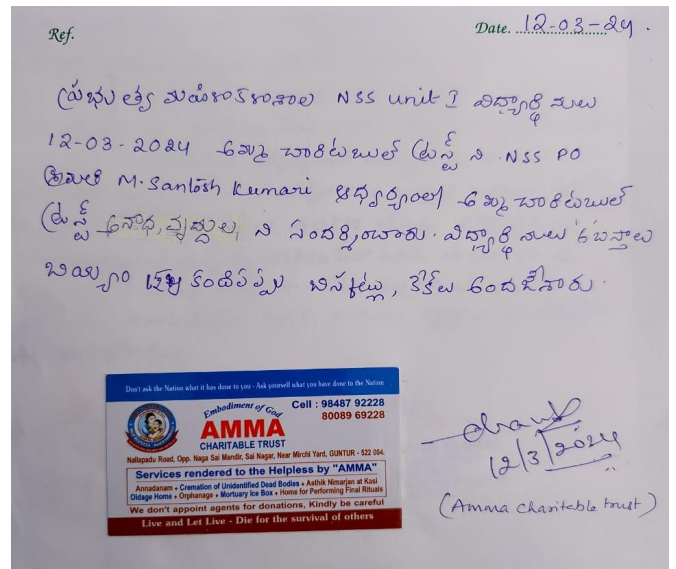 Ref.
Date. 12-03-24.
ప్రభుత్వ మహిళా కళాశాల NSS unit I విద్యార్థినులు
12-03-2024 అమ్మ చారిటబుల్ ట్రస్ట్ ని NSS PO
శ్రీమతి M. Santosh Kumari ఆధ్వర్యంలో అమ్మ చారిటబుల్
ట్రస్ట్ అనాధ, వృద్దుల, ని సందర్శించారు. విద్యార్థినులు 6 బస్తాలు
బియ్యం కందిపప్పు బిస్కట్లు, కేకేలు అందజేశారు.
Don't ask the Nation what it has done to you - Ask yourself what you have done to the Nation
Embodiment of God
Cell : 98487 92228
80089 69228
AMMA
CHARITABLE TRUST
Nallapadu Road, Opp. Naga Sai Mandir, Sai Nagar, Near Mirchi Yard, GUNTUR - 522 004.
Services rendered to the Helpless by "AMMA"
Annadanam + Cremation of Unidentified Dead Bodies + Asthik Nimarjan at Kasi
Oldage Home + Orphanage + Mortuary Ice Box + Home for Performing Final Rituals
We don't appoint agents for donations, Kindly be careful
Live and Let Live - Die for the survival of others
12/3/2024
(Amma charitable trust)